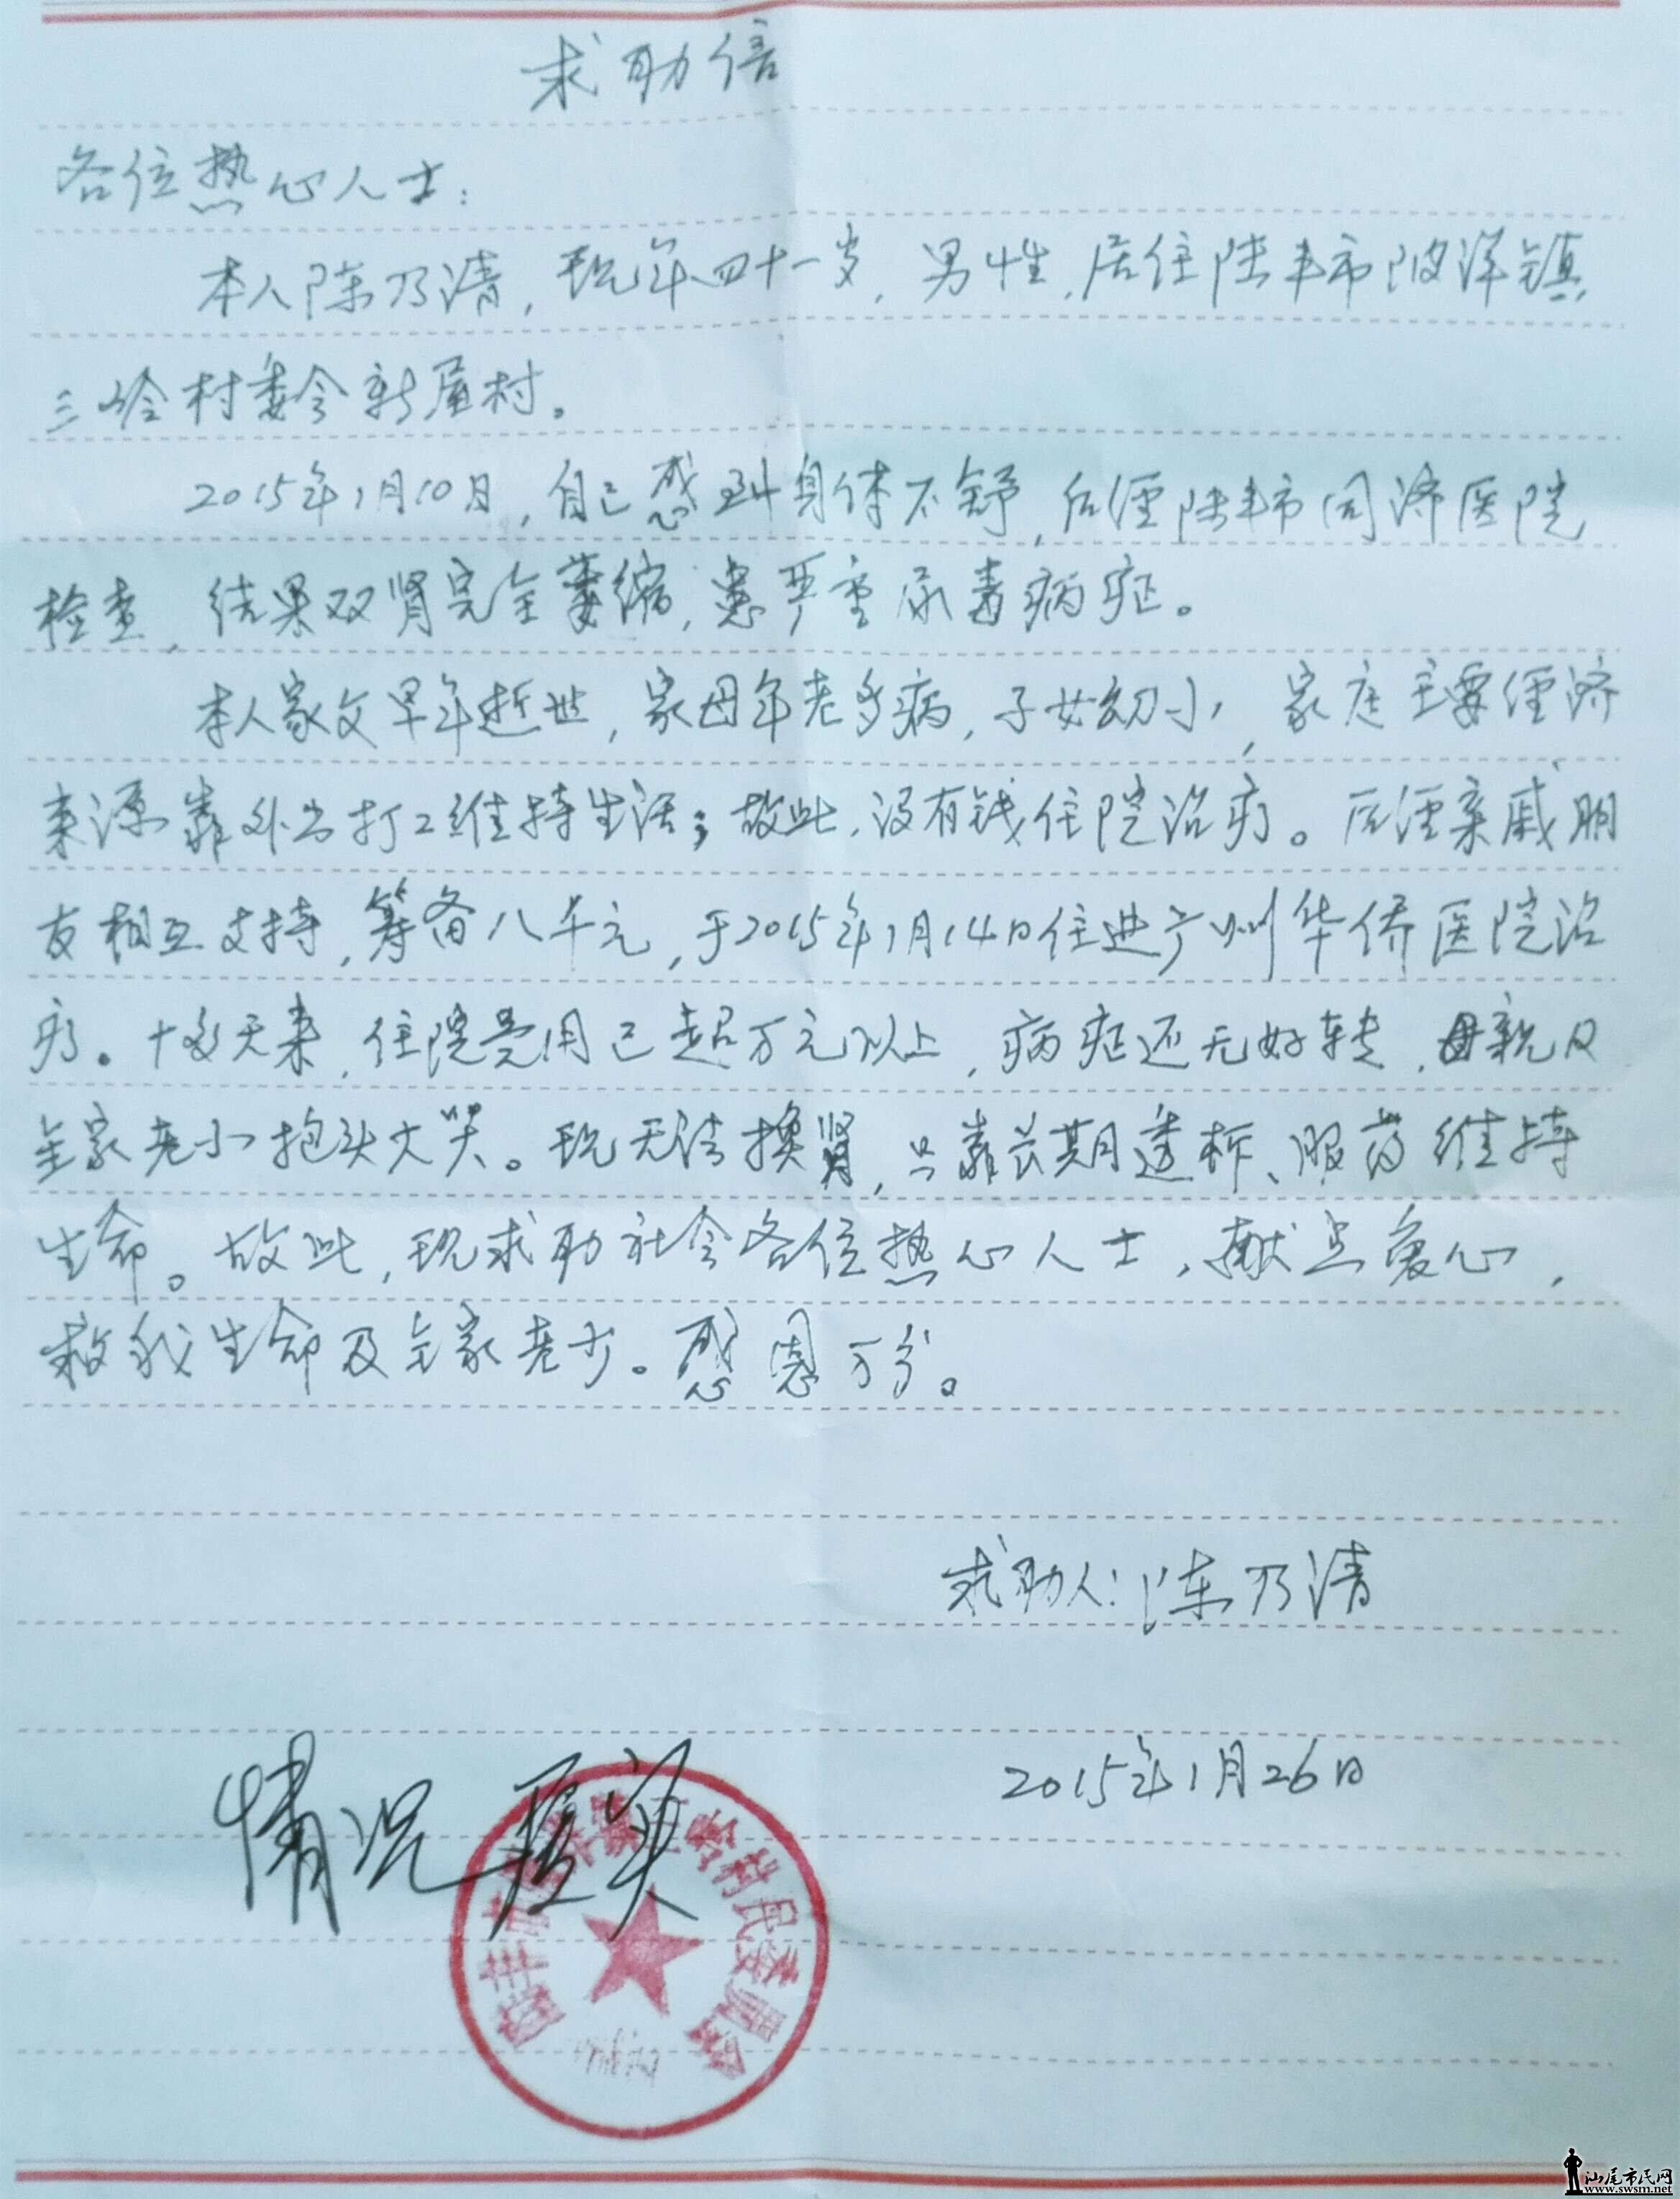 求助信
各位热心人士：
本人陈乃清，现年四十一岁，男性，居住陆丰市陂洋镇
三岭村委会新屋村。
2015年1月10日，自己感到身体不舒，后经陆丰市同济医院
检查，结果双肾完全萎缩，患严重尿毒病症。
本人家父早年逝世，家母年老多病，子女幼小，家庭主要经济
来源靠外出打工维持生活；故此，没有钱住院治疗。后经亲戚朋
友相互支持，筹备八千元，于2015年1月14日住进广州华侨医院治
疗。十多天来，住院费用已超万元以上，病症还无好转，母亲及
全家老小抱头大哭。现无法换肾，只靠长期透析、服药维持
生命。故此，现求助社会各位热心人士，献出爱心，
救我生命及全家老少。感恩万分。
求助人：陈乃清
2015年1月26日
情况属实
陆丰市陂洋镇三岭村民委员会
汕尾市民网
www.swsm.net